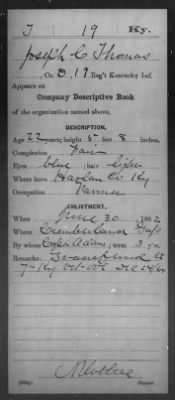 T 19 Ky.
Joseph C Thomas
, Co. D, 19 Reg't Kentucky Inf.
Appears on
Company Descriptive Book
of the organization named above.
DESCRIPTION.
Age 22 years; height 5 feet 8 inches.
Complexion Fair
Eyes blue ; hair light
Where born Harlan Co Ky
Occupation Farmer
ENLISTMENT.
When June 30 , 1862
Where Cumberland Gap
By whom Capt Adams ; term 3 y'rs.
Remarks: Transferred to
7- Ky Vet Vols Dec 24/64
Copyist.